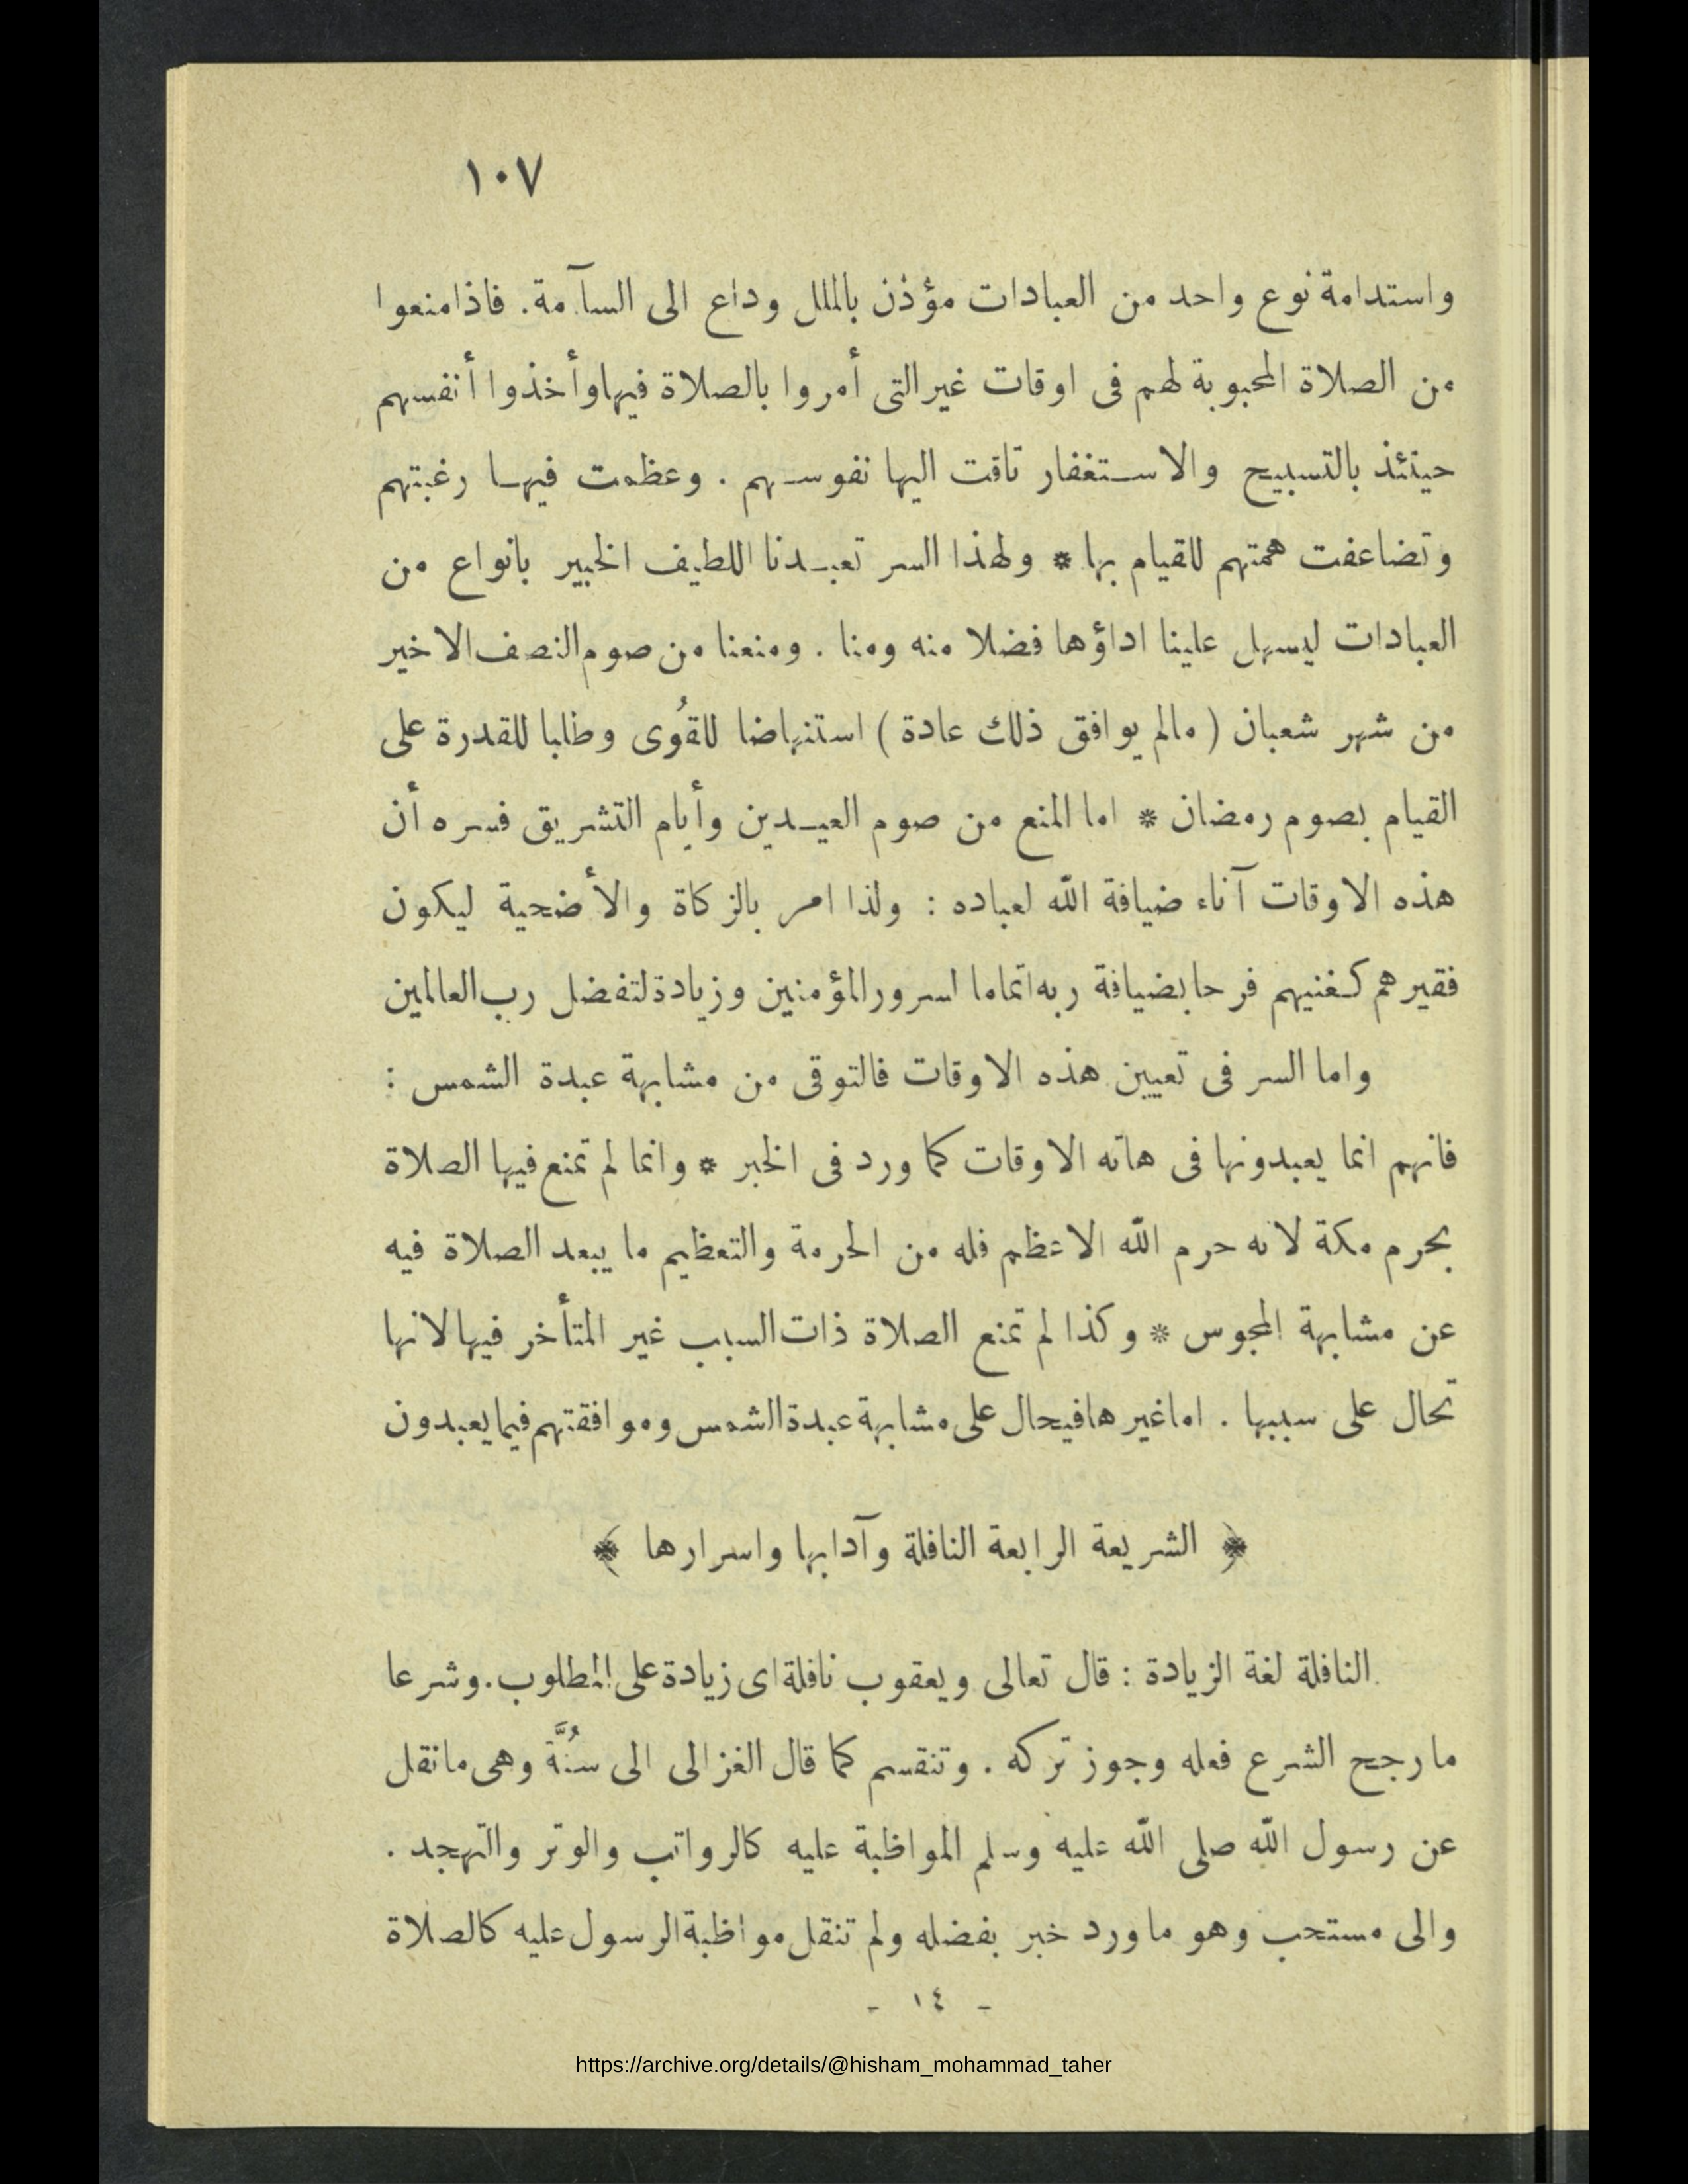 ١٠٧
واستدامة نوع واحد من العبادات مؤذن بالملل وداع الى السآمة. فاذا منعوا
من الصلاة المحبوبة لهم فى اوقات غير التى أمروا بالصلاة فيها وأخذوا أنفسهم
حينئذ بالتسبيح والاستغفار تاقت اليها نفوسهم . وعظمت فيها رغبتهم
وتضاعفت همتهم للقيام بها * ولهذا السر تعبدنا اللطيف الخبير بانواع من
العبادات ليسهل علينا اداؤها فضلا منه ومنا . ومنعنا من صوم النصف الاخير
من شهر شعبان ( مالم يوافق ذلك عادة ) استنهاضا للقُوى وطلبا للقدرة على
القيام بصوم رمضان * اما المنع من صوم العيدين وأيام التشريق فسره أن
هذه الاوقات آناء ضيافة اللّه لعباده : ولذا امر بالزكاة والأضحية ليكون
فقيرهم كغنيهم فرحا بضيافة ربه اتماما لسرور المؤمنين وزيادة لتفضل رب العالمين
واما السر فى تعيين هذه الاوقات فالتوقى من مشابهة عبدة الشمس :
فانهم انما يعبدونها فى هاته الاوقات كما ورد فى الخبر * وانما لم تمنع فيها الصلاة
بحرم مكة لانه حرم اللّه الاعظم فله من الحرمة والتعظيم ما يبعد الصلاة فيه
عن مشابهة المجوس * وكذا لم تمنع الصلاة ذات السبب غير المتأخر فيها لانها
تحال على سببها . اما غيرها فيحال على مشابهة عبدة الشمس وموافقتهم فيما يعبدون
﴿ الشريعة الرابعة النافلة وآدابها واسرارها ﴾
النافلة لغة الزيادة : قال تعالى ويعقوب نافلة اى زيادة على المطلوب. وشرعا
ما رجح الشرع فعله وجوز تركه . وتنقسم كما قال الغزالى الى سُنَّة وهى مانقل
عن رسول اللّه صلى اللّه عليه وسلم المواظبة عليه كالرواتب والوتر والتهجد .
والى مستحب وهو ما ورد خبر بفضله ولم تنقل مواظبة الرسول عليه كالصلاة
- ١٤ -
https://archive.org/details/@hisham_mohammad_taher